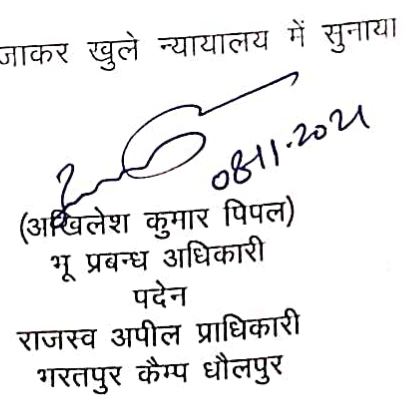 जाकर खुले न्यायालय में सुनाया
08-11-2021
(अखिलेश कुमार पिपल)
भू प्रबन्ध अधिकारी
पदेन
राजस्व अपील प्राधिकारी
भरतपुर कैम्प धौलपुर